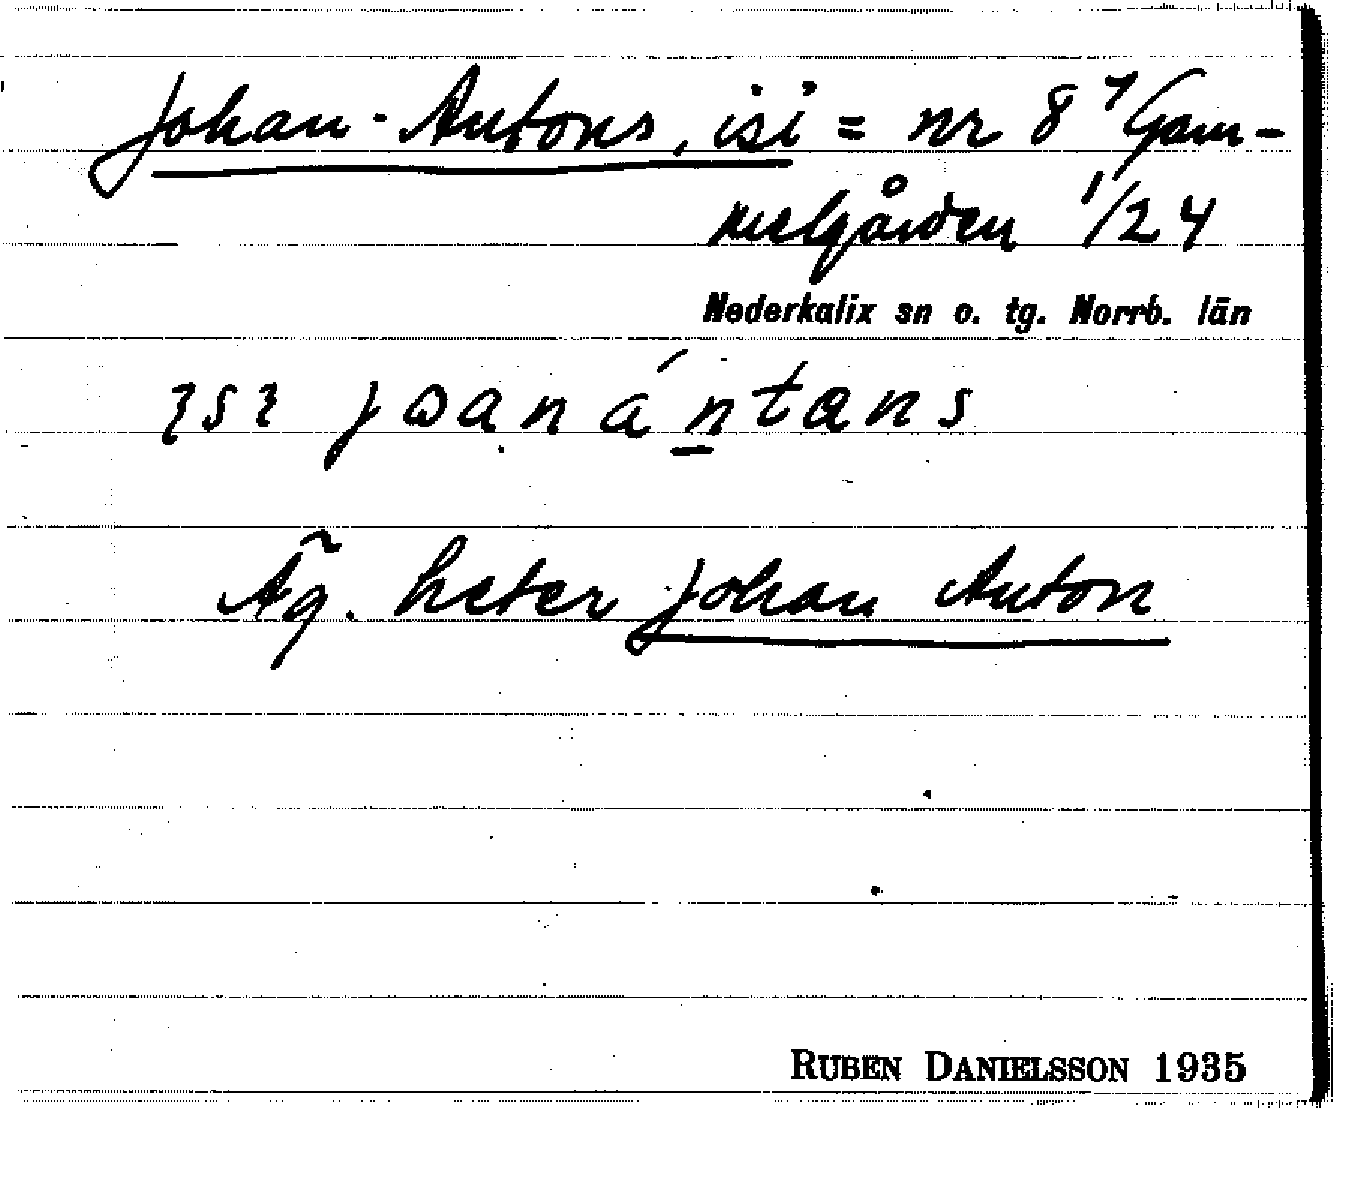 Johan-Antons, isi = nr 8⁷ Gam-
melgården 1/24
Nederkalix sn o. tg. Norrb. län
ɿsɿ jωanántans
Äg. heter Johan Anton
RUBEN DANIELSSON 1935